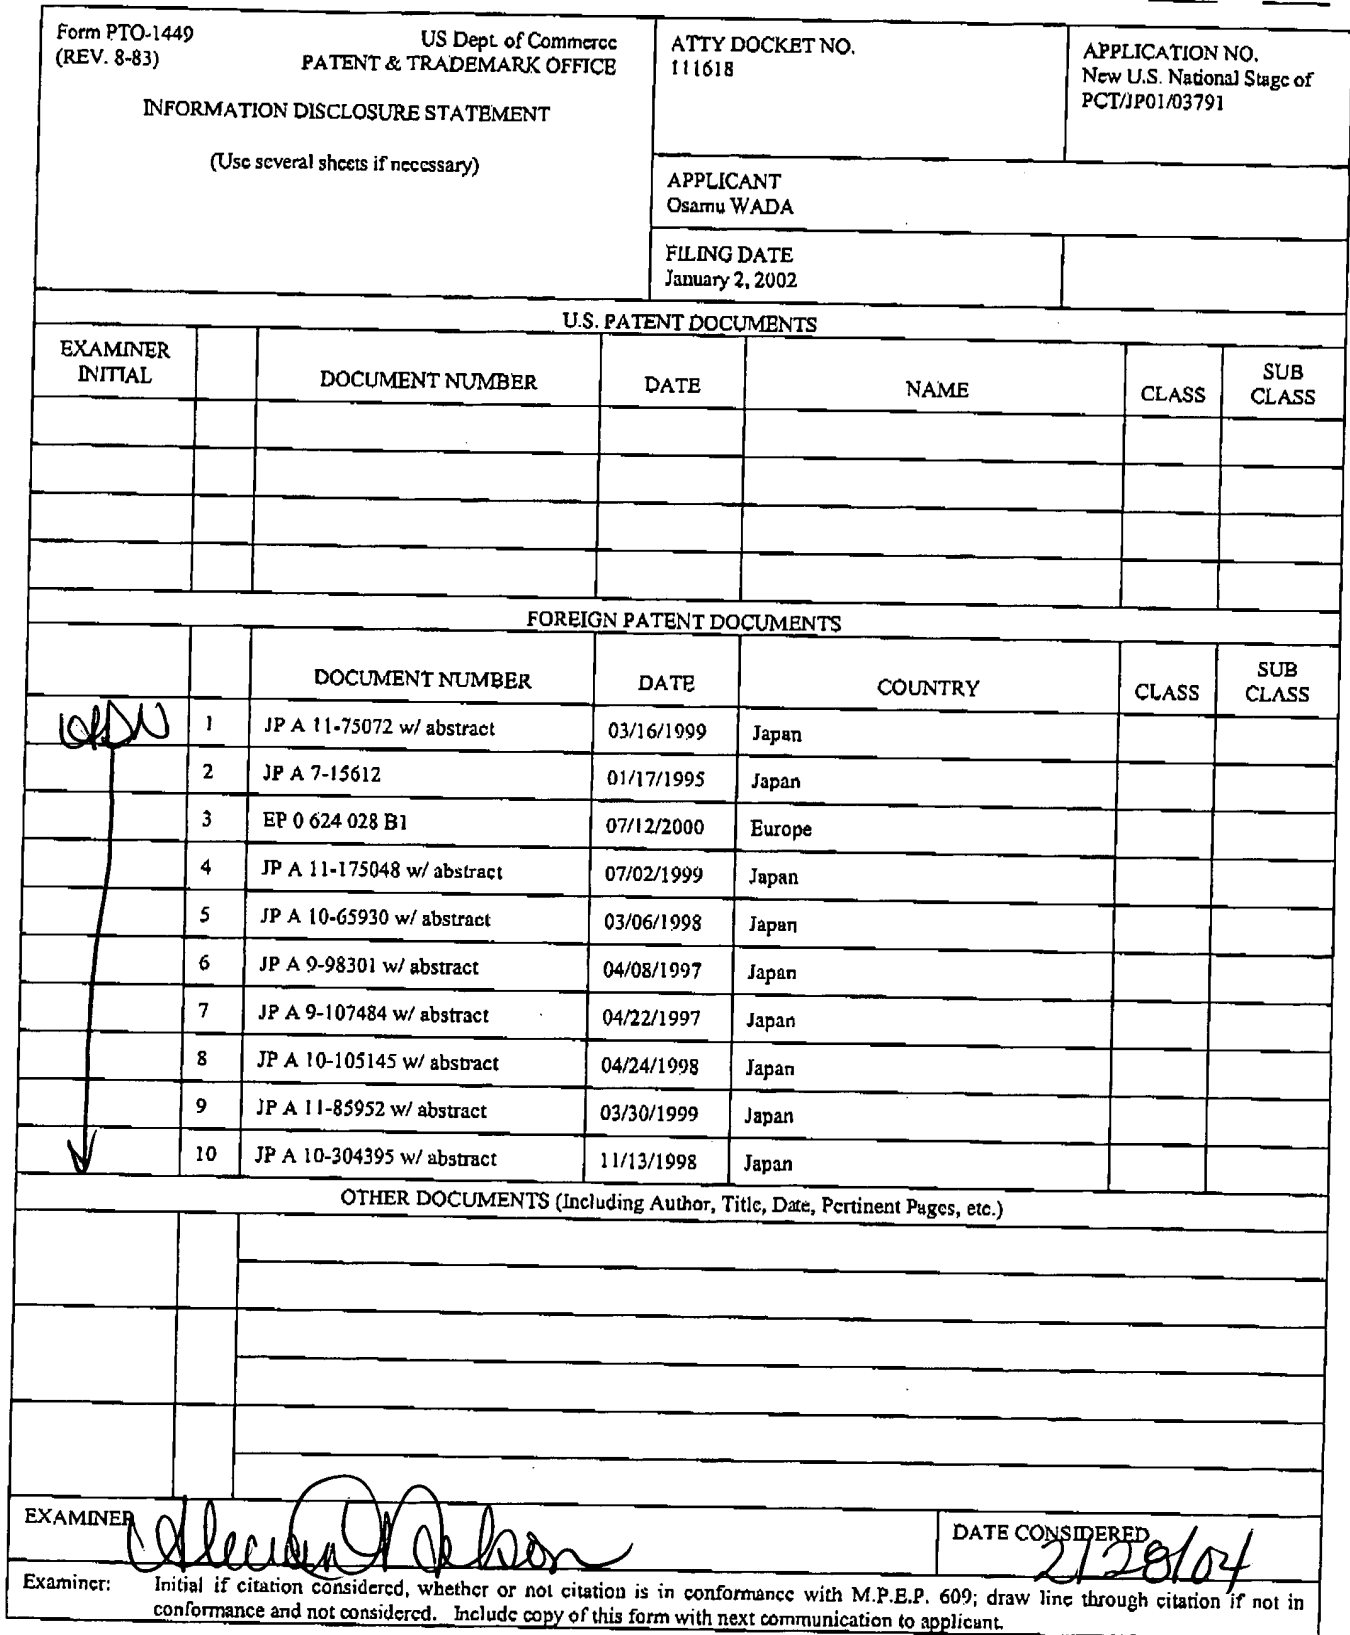 Form PTO-1449
(REV. 8-83)
US Dept. of Commerce
PATENT & TRADEMARK OFFICE
INFORMATION DISCLOSURE STATEMENT
(Use several sheets if necessary)
ATTY DOCKET NO.
111618
APPLICATION NO.
New U.S. National Stage of
PCT/JP01/03791
APPLICANT
Osamu WADA
FILING DATE
January 2, 2002
U.S. PATENT DOCUMENTS
EXAMINER INITIAL DOCUMENT NUMBER DATE NAME CLASS SUB CLASS
FOREIGN PATENT DOCUMENTS
DOCUMENT NUMBER DATE COUNTRY CLASS SUB CLASS
1 JP A 11-75072 w/ abstract 03/16/1999 Japan
2 JP A 7-15612 01/17/1995 Japan
3 EP 0 624 028 B1 07/12/2000 Europe
4 JP A 11-175048 w/ abstract 07/02/1999 Japan
5 JP A 10-65930 w/ abstract 03/06/1998 Japan
6 JP A 9-98301 w/ abstract 04/08/1997 Japan
7 JP A 9-107484 w/ abstract 04/22/1997 Japan
8 JP A 10-105145 w/ abstract 04/24/1998 Japan
9 JP A 11-85952 w/ abstract 03/30/1999 Japan
10 JP A 10-304395 w/ abstract 11/13/1998 Japan
OTHER DOCUMENTS (Including Author, Title, Date, Pertinent Pages, etc.)
EXAMINER
DATE CONSIDERED 2/28/04
Examiner: Initial if citation considered, whether or not citation is in conformance with M.P.E.P. 609; draw line through citation if not in
conformance and not considered. Include copy of this form with next communication to applicant.